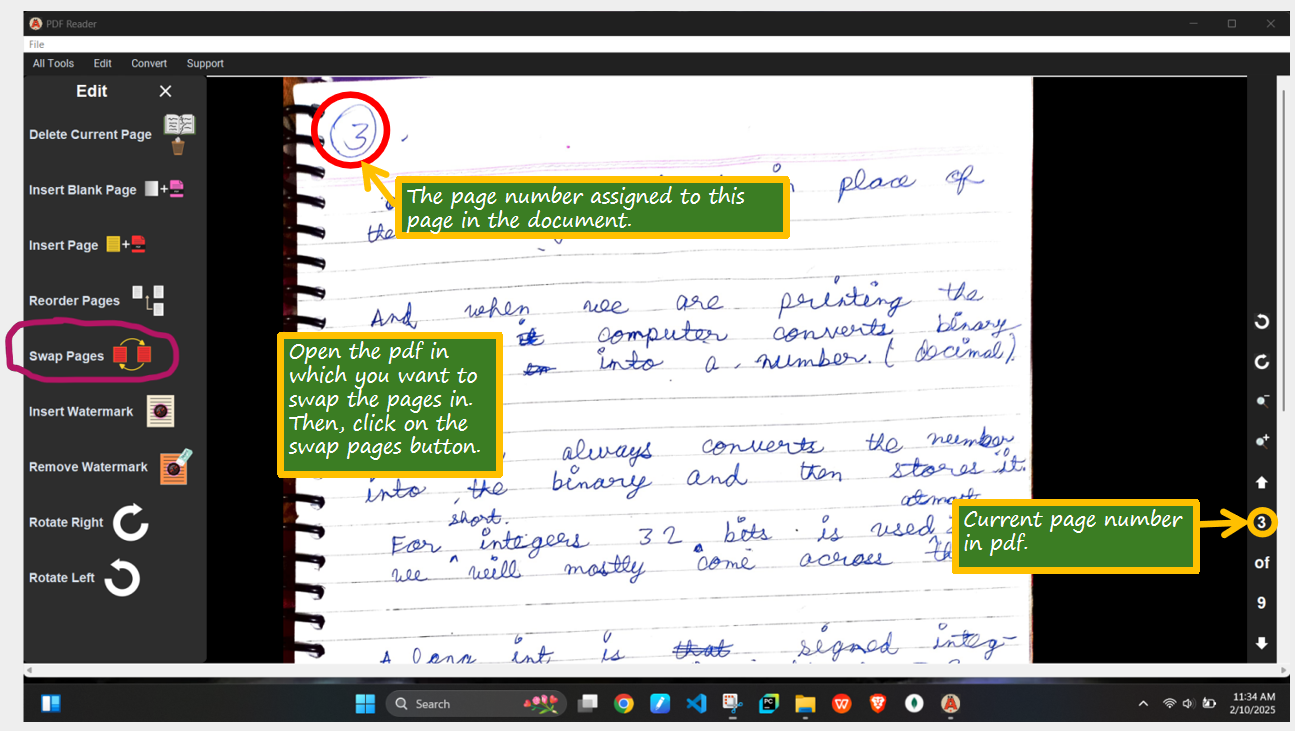 PDF Reader
File
All Tools Edit Convert Support
Edit
Delete Current Page
Insert Blank Page
Insert Page
Reorder Pages
Swap Pages
Insert Watermark
Remove Watermark
Rotate Right
Rotate Left
3
in place of
The page number assigned to this
page in the document.
the
And when we are printing the
it computer converts binary
into a number. (decimal).
Open the pdf in
which you want to
swap the pages in.
Then, click on the
swap pages button.
always converts the number
into the binary and then stores it.
short. atmost
For integers 32 bits is used
we will mostly come across
Current page number
in pdf.
3
of
9
int is that signed integ-
Search
11:34 AM
2/10/2025